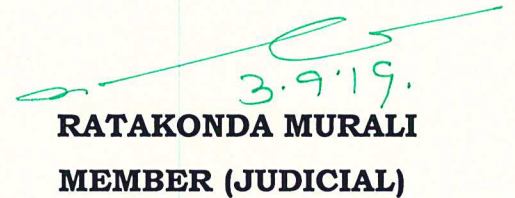 3.9.19.
RATAKONDA MURALI
MEMBER (JUDICIAL)